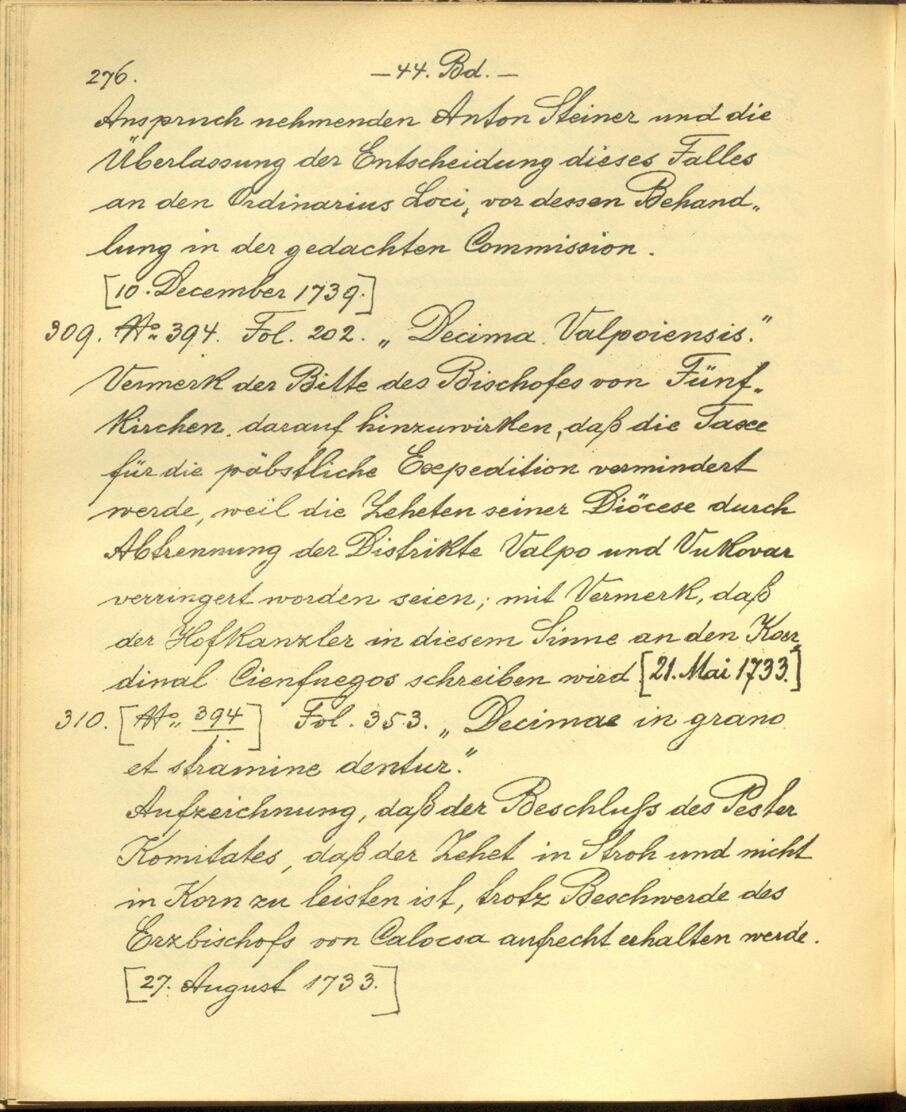 276.
— 44. Bd. —
Anspruch nehmenden Anton Steiner und die
Überlassung der Entscheidung dieses Falles
an den Ordinarius Loci, vor dessen Behand„
lung in der gedachten Commission.
[10. December 1739.]
309. No. 394. Fol. 202. „Decima Valpoiensis."
Vermerk der Bitte des Bischofes von Fünf„
kirchen, darauf hinzuwirken, daß die Taxe
für die päbstliche Expedition vermindert
werde, weil die Zeheten seiner Diöcese durch
Abtrennung der Distrikte Valpo und Vukovar
verringert worden seien; mit Vermerk, daß
der Hofkanzler in diesem Sinne an den Kar„
dinal Cienfuegos schreiben wird [21. Mai 1733.]
310. [No. 394] Fol. 353. „Decimae in grano
et stramine dentur."
Aufzeichnung, daß der Beschluß des Pester
Komitates, daß der Zehet in Stroh und nicht
in Korn zu leisten ist, trotz Beschwerde des
Erzbischofs von Calocsa aufrecht erhalten werde.
[27. August 1733.]